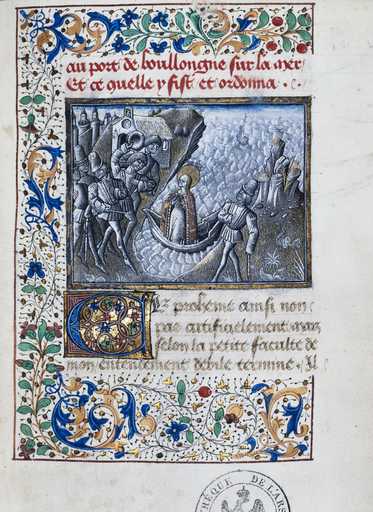 au port de boullongne sur la mer
Et ce quelle y fist et ordonna .
Le proheme ainsi non
pas artificielement mais
selon la petite faculte de
mon entendement debile termine . Il
THÈQUE DE L'ARS